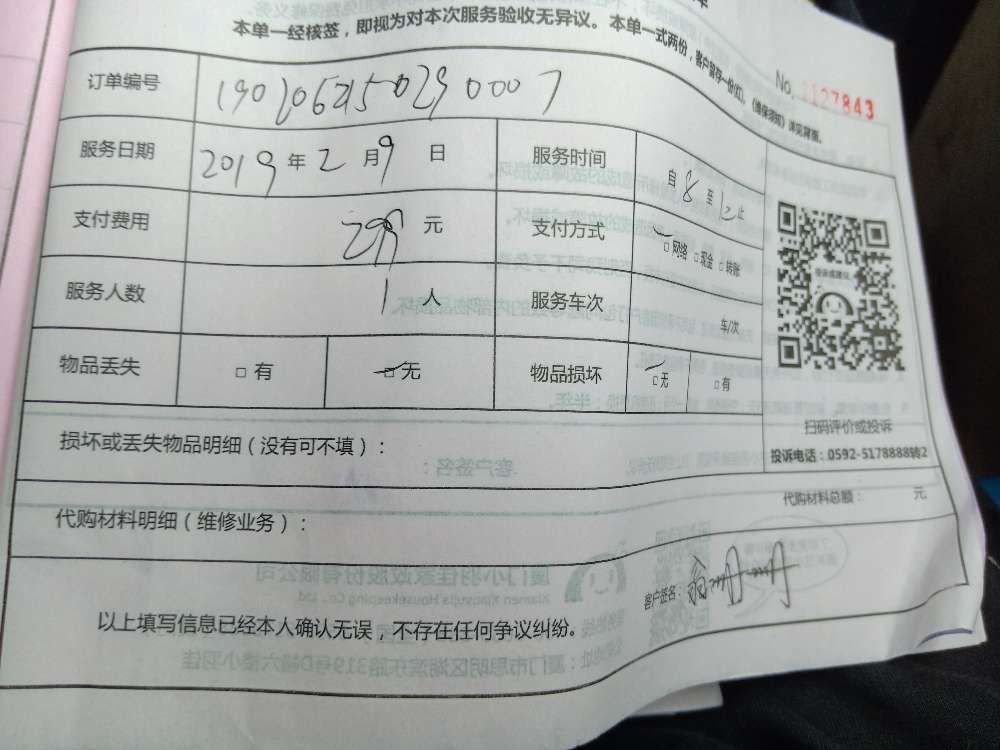 本单一经核签，即视为对本次服务验收无异议。本单一式两份，客户留存一份(红)。《维保须知》详见背面。
No. 1127843
订单编号 19020621502900007
服务日期 2019 年 2 月 9 日 服务时间 自 8 至 12 止
支付费用 299 元 支付方式 □网络 □现金 □转账
服务人数 1 人 服务车次 车/次
物品丢失 □ 有 □ 无 物品损坏 □无 □有
扫码评价或投诉
投诉电话：0592-5178888转2
损坏或丢失物品明细（没有可不填）：
代购材料总额： 元
代购材料明细（维修业务）：
客户签名：
以上填写信息已经本人确认无误，不存在任何争议纠纷。